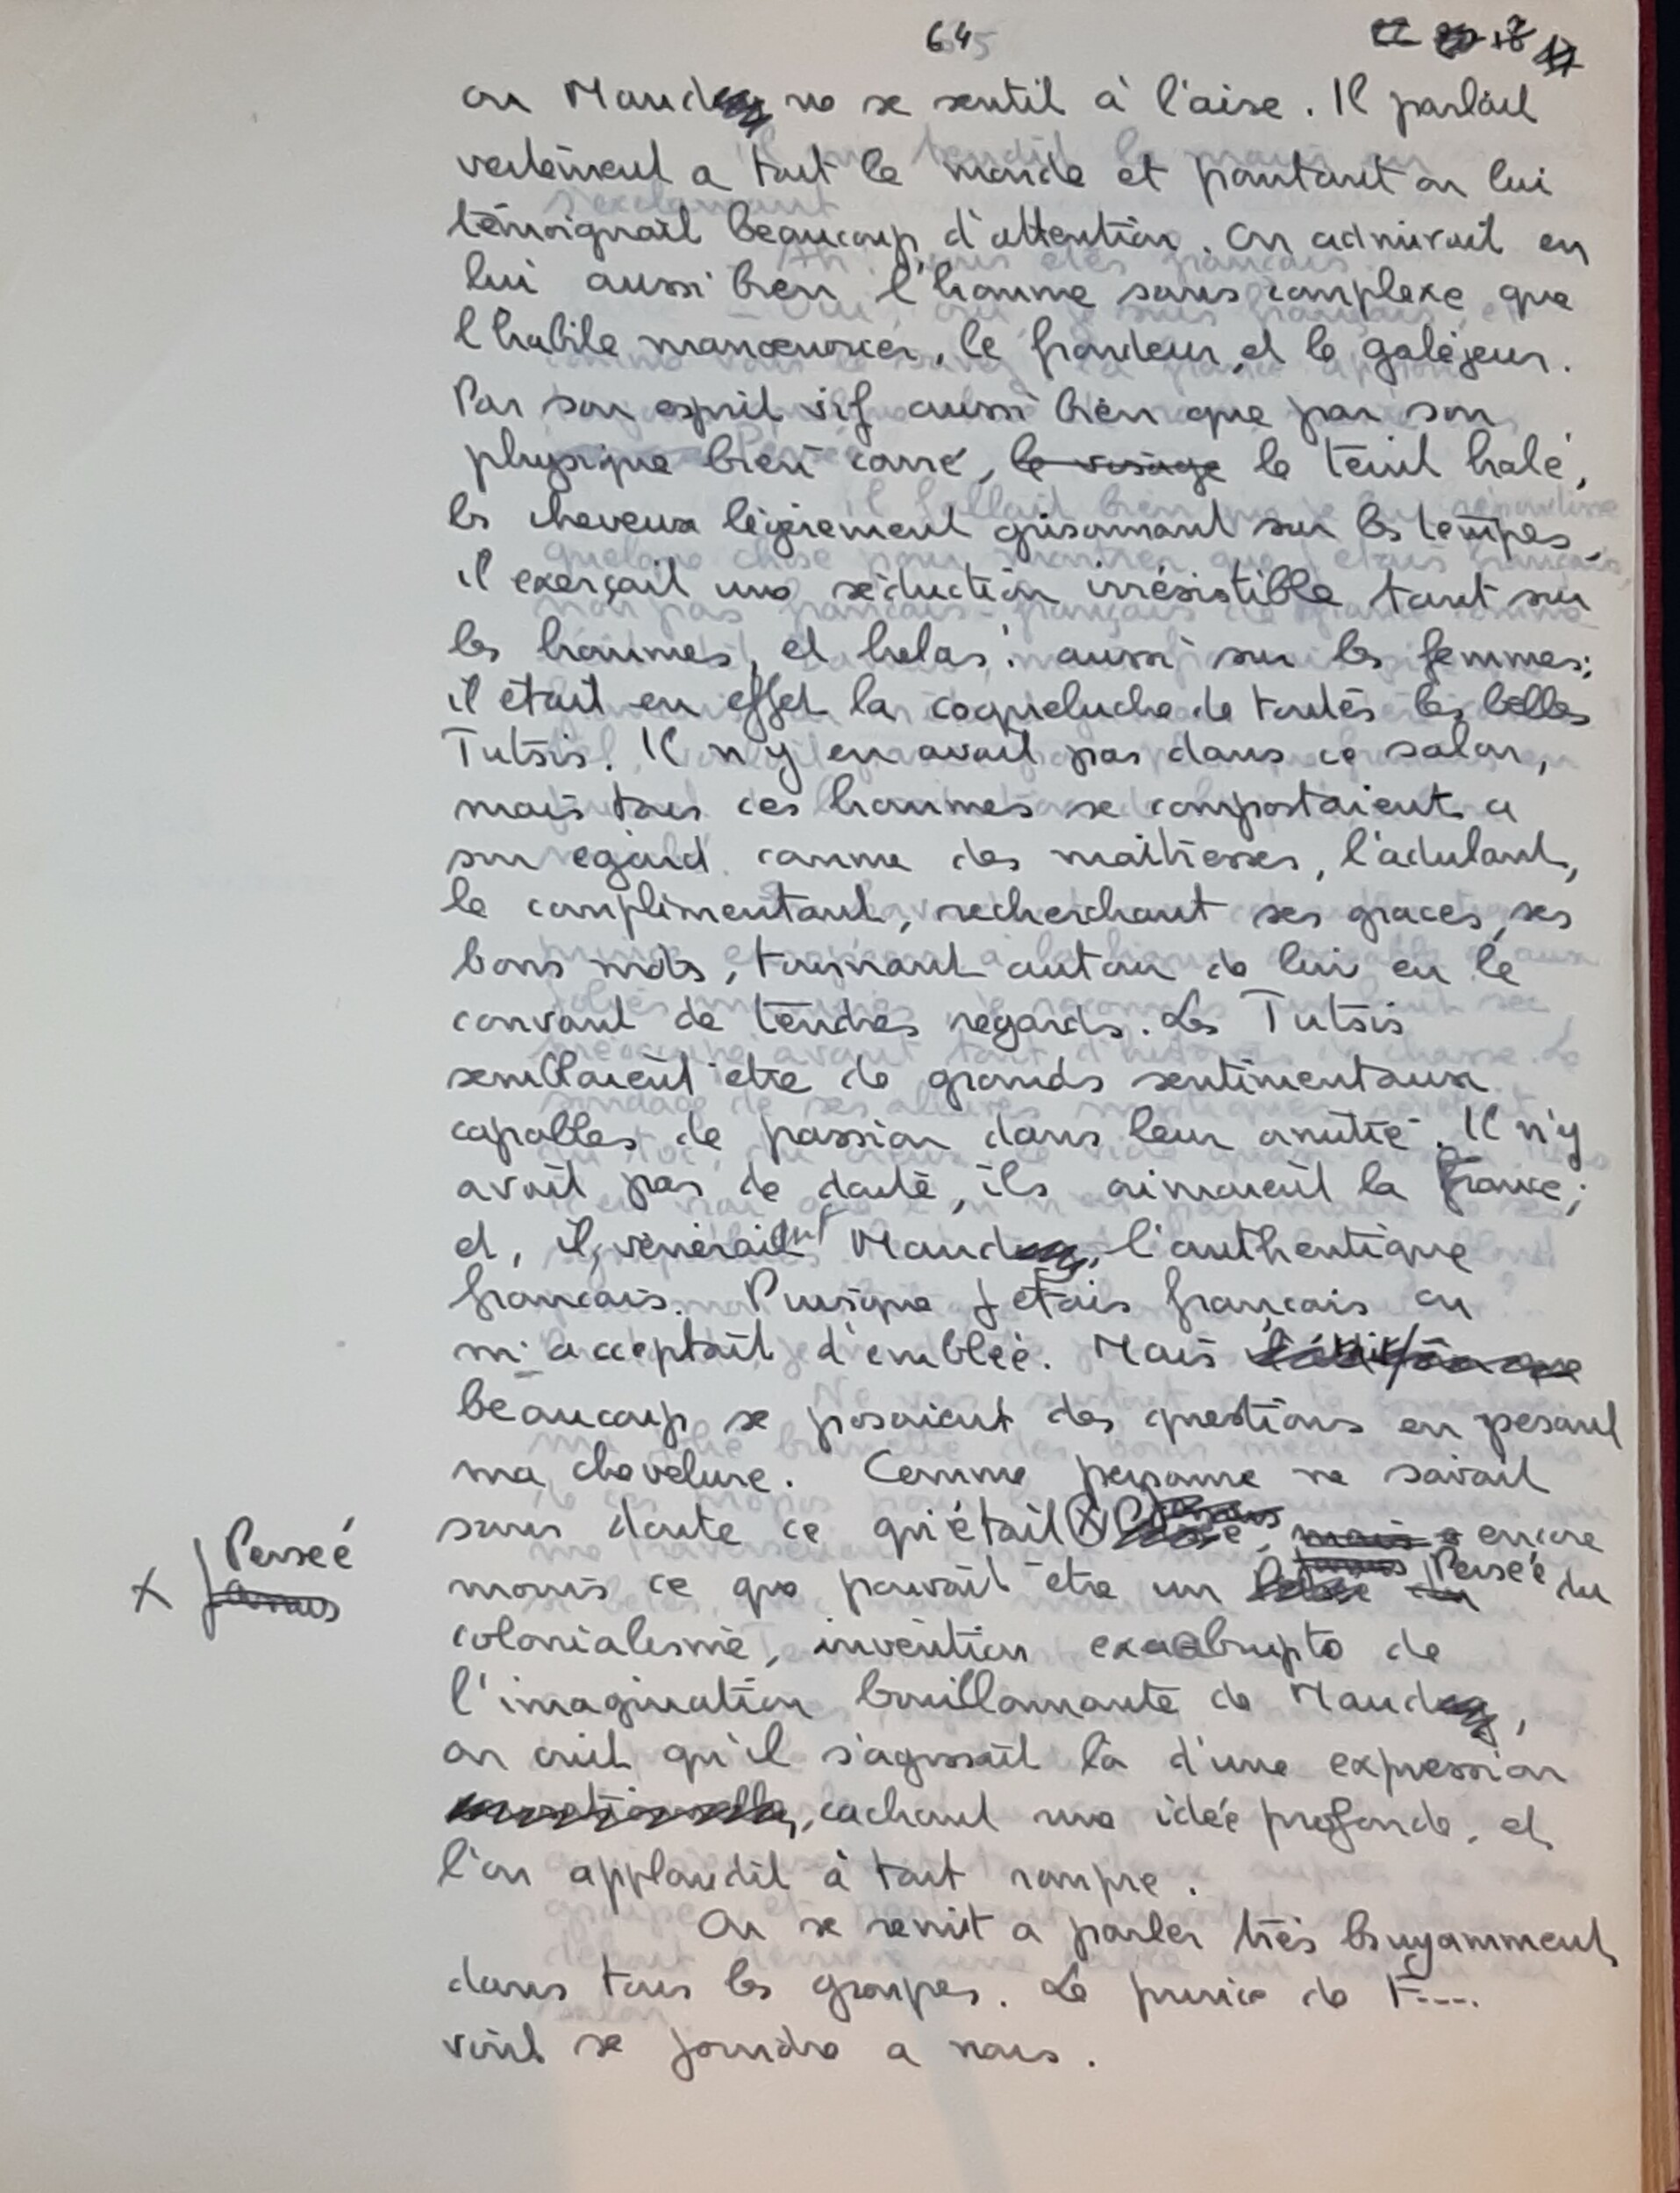 64
où Maud ne se sentit à l'aise. Il parlait
vertement a tout le monde et pourtant on lui
témoignait beaucoup d'attention. On admirait en
lui aussi bien l'homme sans complexe que
l'habile manoeuvrer, le frondeur et le galéjeur.
Par son esprit vif aussi bien que par son
physique bien carré, le visage le teint halé,
les cheveux légèrement grisonnant sur les tempes,
il exerçait une séduction irrésistible tant sur
les hommes, et helas! aussi sur les femmes;
il était en effet la coqueluche de toutes les belles
Tutsis. Il n'y en avait pas dans ce salon,
mais tous ces hommes se comportaient a
son egard comme des maitresses, l'adulant,
le complimentant, recherchant ses graces, ses
bons mots, tournant autour de lui en le
couvant de tendres regards. Les Tutsis
semblaient etre de grands sentimentaux
capables de passion dans leur amitié. Il n'y
avait pas de doute, ils aimaient la France;
et, ils, vénéraient Maud, l'authentique
francais. Puisque j'étais français on
m'acceptait d'emblée. Mais
beaucoup se posaient des questions en pesant
ma chevelure. Comme personne ne savait
sans doute ce qu'était ⊗ mais encore
x Persée
Janus
moins ce que pouvait être un Persée du
colonialisme, invention exabrupto de
l'imagination bouillonnante de Maud,
on crut qu'il s'agissait là d'une expression
cachant une idée profonde, et
l'on applaudit à tout rompre.
On se remit a parler très bruyamment
dans tous les groupes. Le prince de F....
vint se joindre a nous.